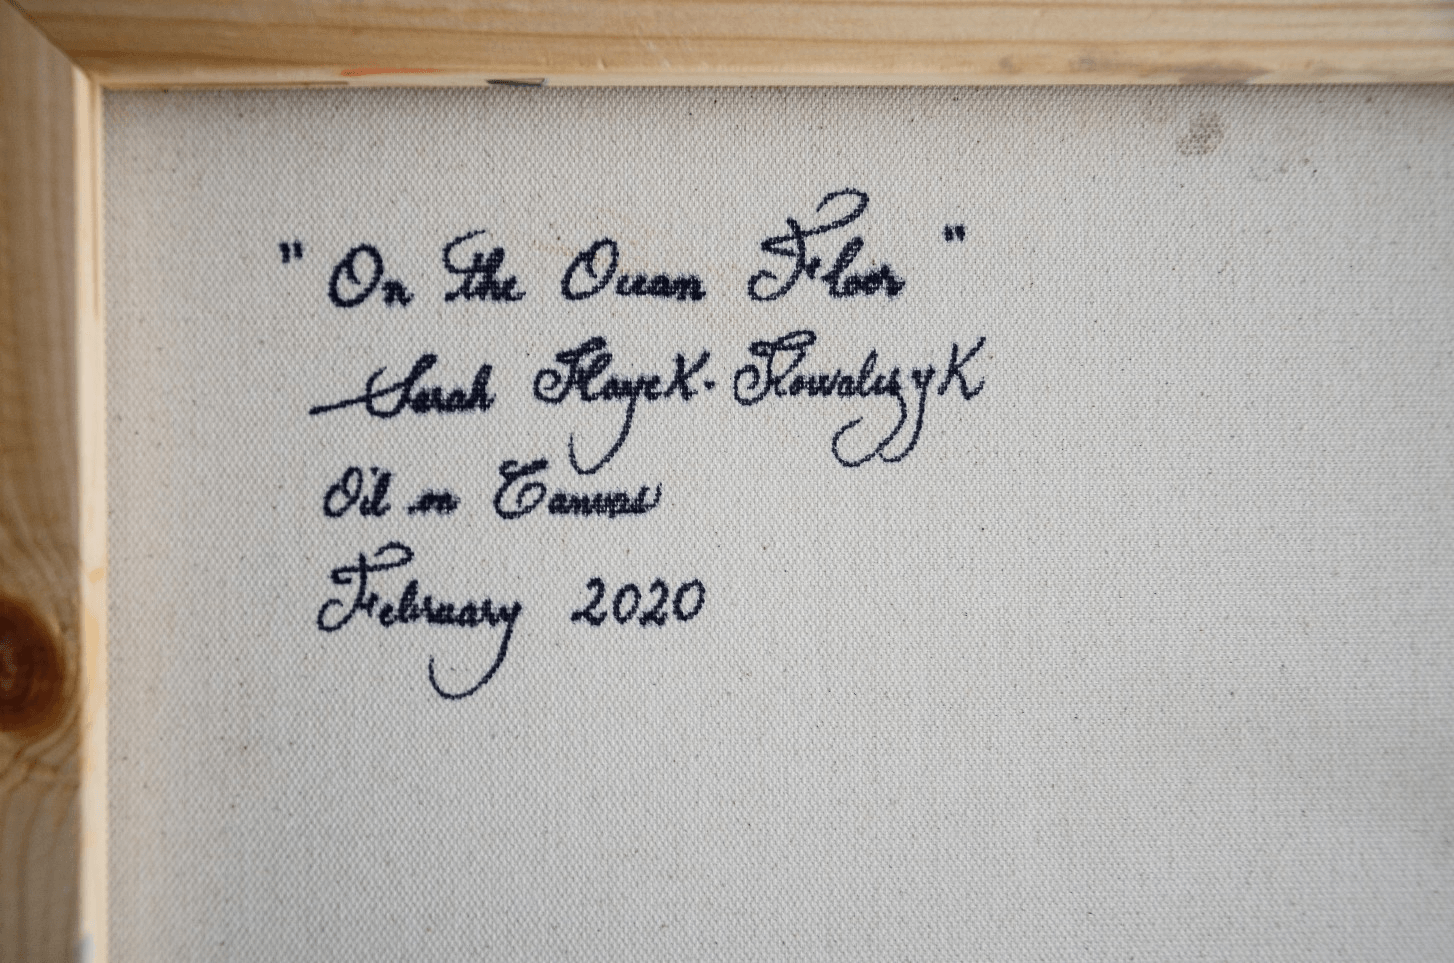 "On the Ocean Floor"
Sarah Hayek-Kowalczyk
Oil on Canvas
February 2020